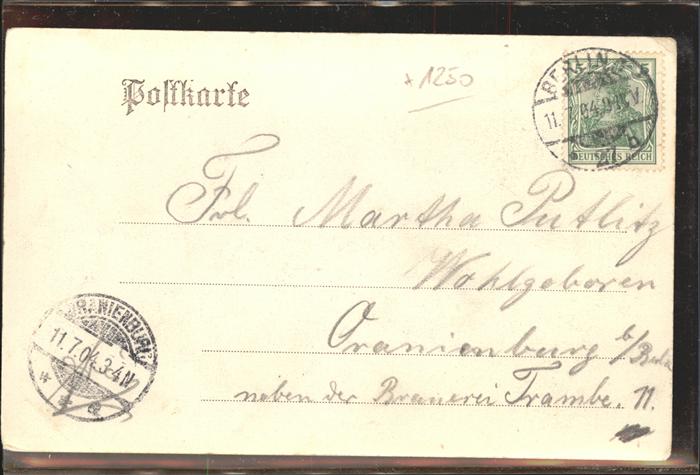 Postkarte
x 1250
BERLIN
11. 04.9-10V
27 b
5
DEUTSCHES REICH
Frl. Martha Putlitz
Wohlgeboren
Oranienburg b/Berlin
neben der Brauerei Trambe. 11.
ORANIENBURG
11.7.04.3-4N